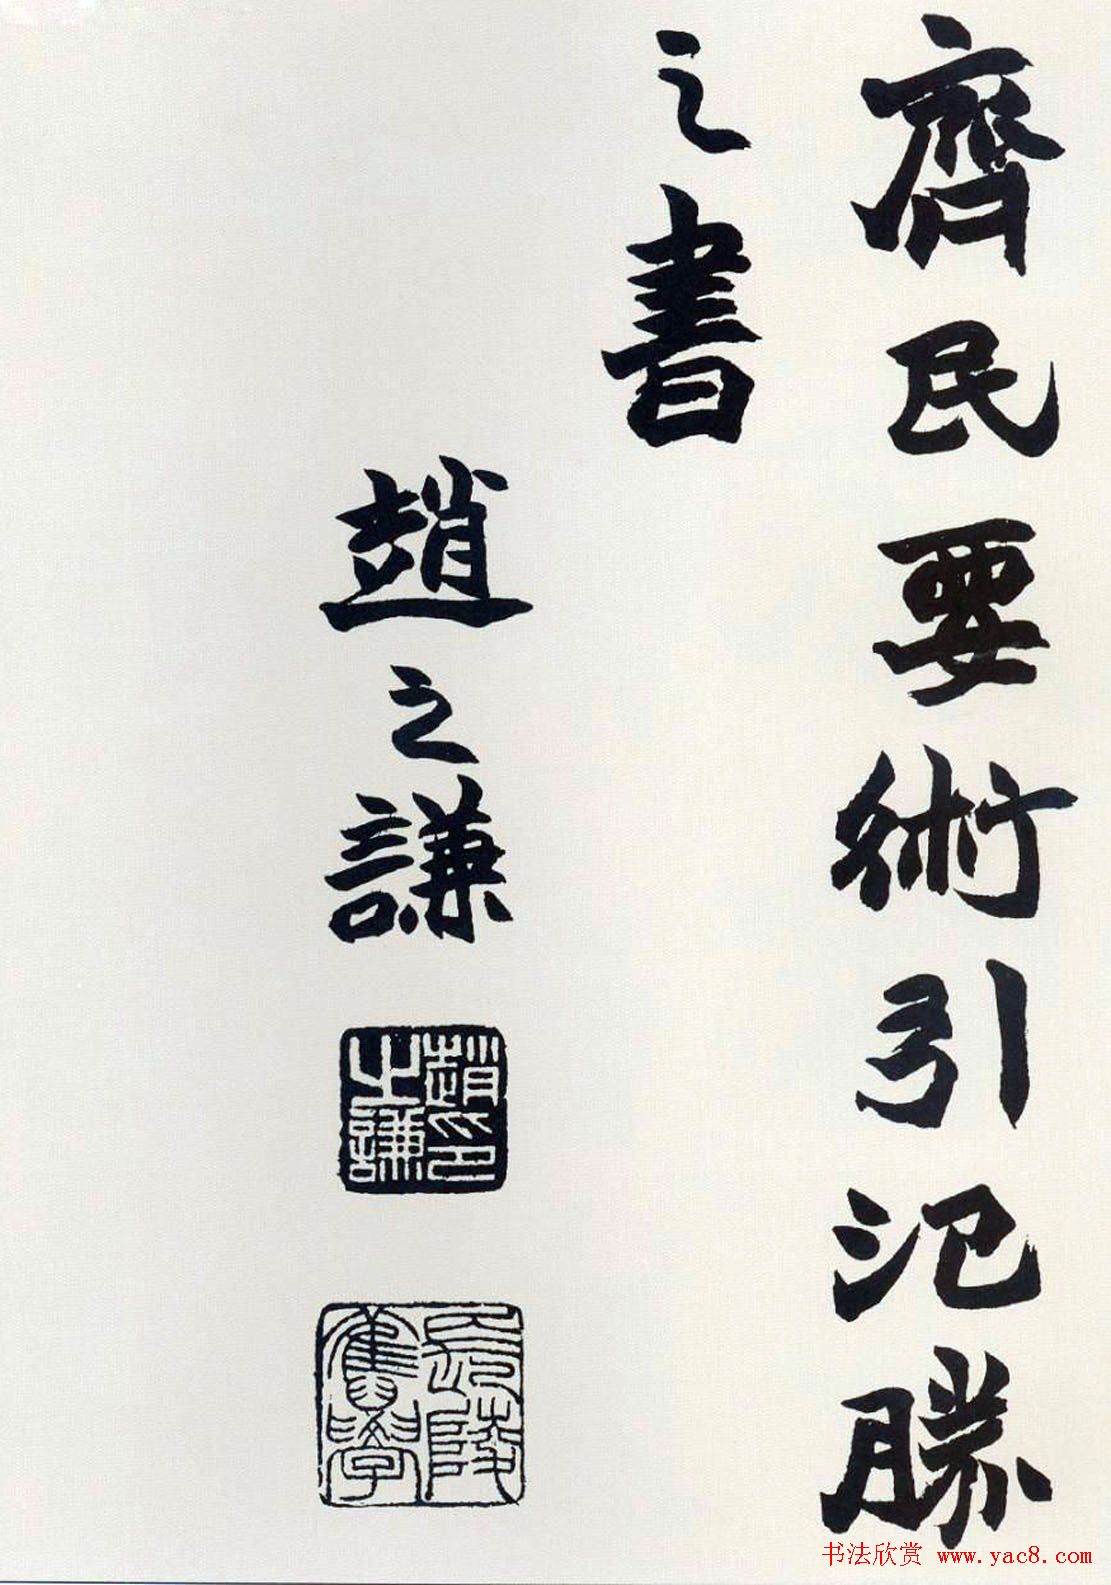 齊民要術引氾勝
之書
趙之謙
趙印之謙
長陵舊學
书法欣赏 www.yac8.com